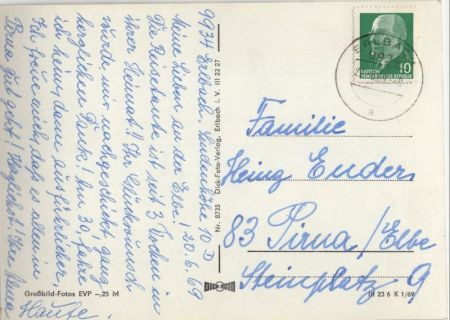 9934 Erlbach, Lindenhöhe 10 D
Meine Lieben an der Elbe! 20.6.69
Die Reisetante ist seit 3 Wochen in
ihrer Heimat!! Ihr Glückwunsch
wurde mir nachgeschickt, ganz
herzlichen Dank! Am 30. fahre
ich heim, dann ausführlicher,
Ich freue mich daß es allen in
Pirna gut geht! Herzlichst! Ihre
Hanfe.
Großbild-Fotos EVP -,25 M
Nr. 8735 Dick-Foto-Verlag, Erlbach i. V. III 23 27
ERLBA
DEUTSCHE
DEMOKRATISCHE REPUBLIK
10
a
Familie
Heinz Enders
83 Pirna/Elbe
Steinplatz 9
III 23 6 K 1/69